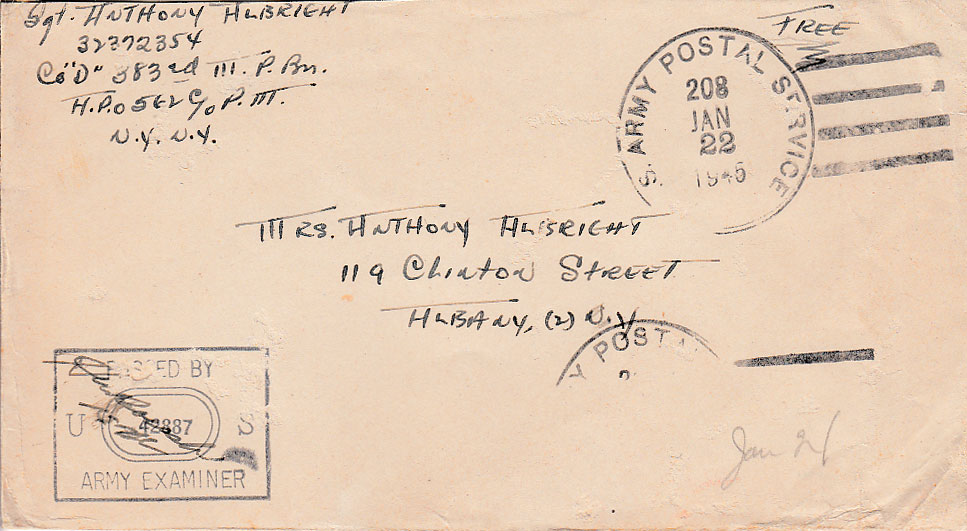 Sgt. ANTHONY ALBRIGHT
32372354
Co "D" 383rd M.P. Bn.
A.P.O 562 C/o P.M.
N.Y. N.Y.
FREE
S. ARMY POSTAL SERVICE
208
JAN
22
1945
MRS. ANTHONY ALBRIGHT
119 CLINTON STREET
ALBANY, (2) N.Y.
Y POSTA
PASSED BY
U S
42887
ARMY EXAMINER
Jan 21